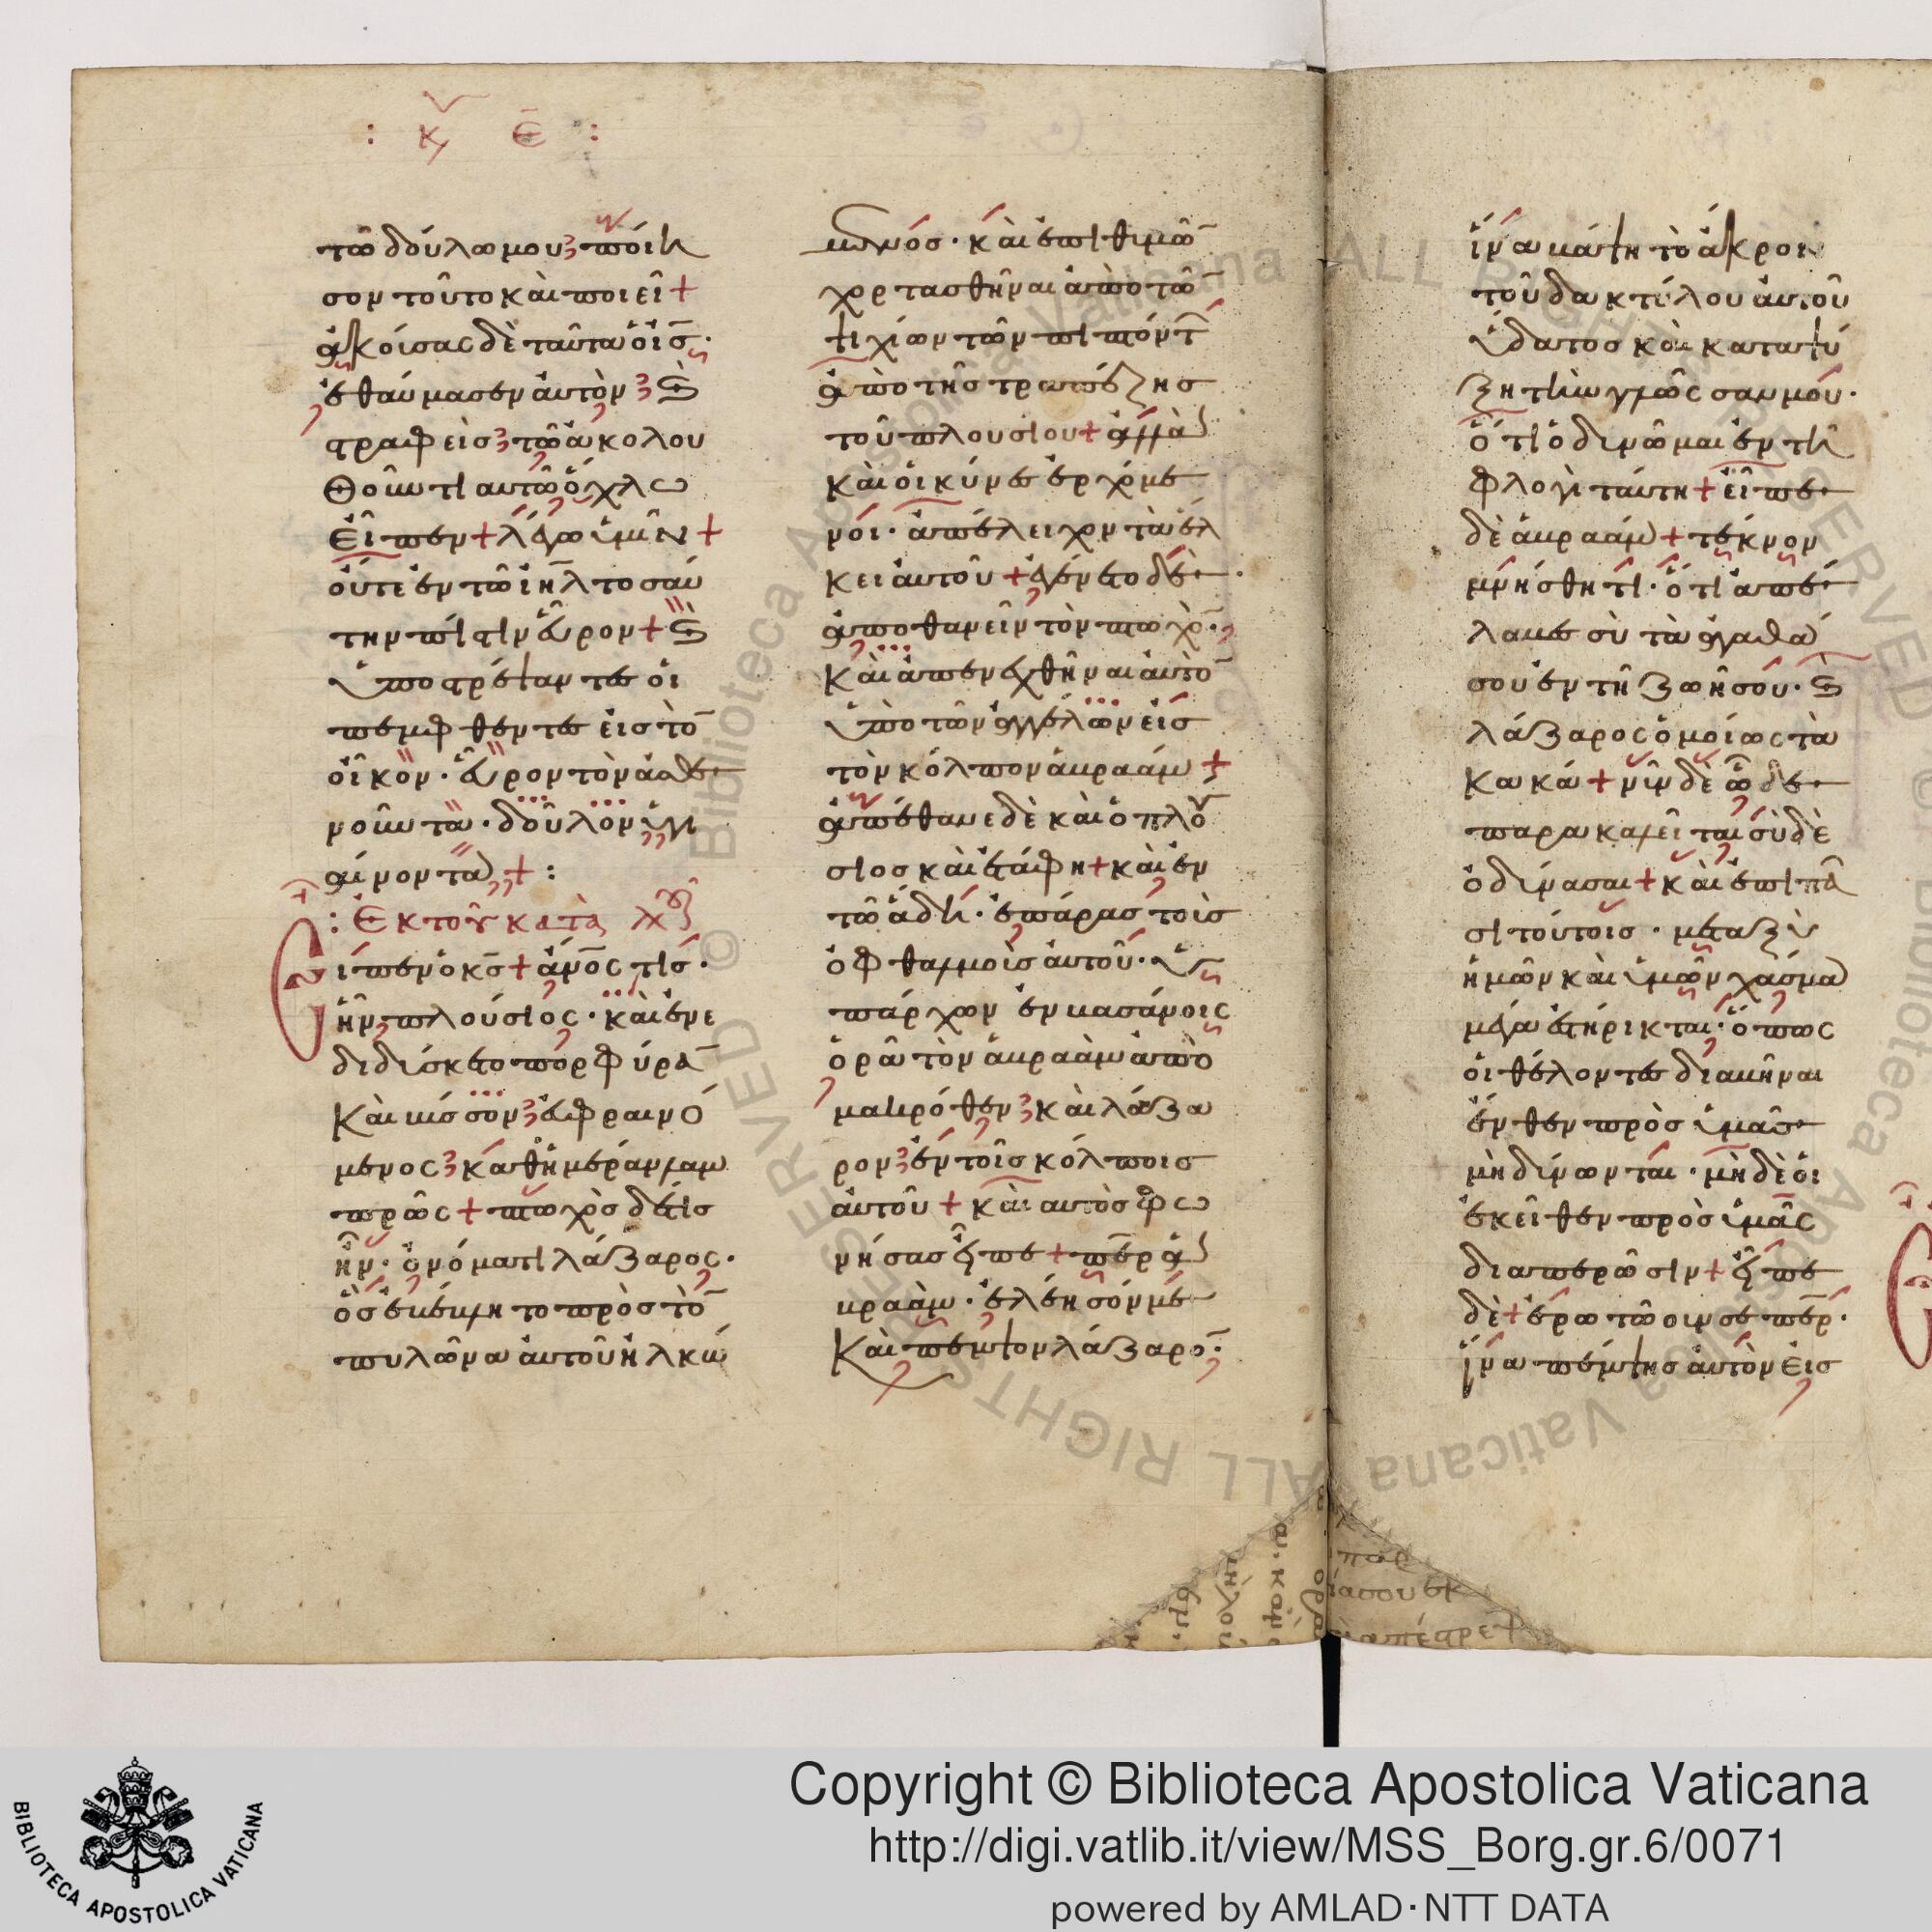 : κυ ε :
τῶ δούλω μου· ποίη
σον τοῦτο καὶ ποιεῖ +
ἀκοίσας δὲ ταῦτα ὁ ις̅·
ἐθαύμασεν ἀυτὸν· καὶ
στραφεὶσ τῶ ἀκολου
θοῦντι αυτῶ ὄχλω
εἶπεν + λέγω ὑμῖν +
ὀύτε ἐν τῶ ιη̅λ τοσαύ
την πίστιν εὗρον + καὶ
ὑποστρέψαντες ὁι
πεμφθέντες εἰς τὸ̅
οἶκον· εὗρον τὸν ἀσθε
νοῦντα· δοῦλον ὑγι
αίνοντα + :
: Ἐκ τοῦ κατὰ λουκ
Εἶπεν ὁ κς̅ + ἀν̅οςτίσ·
ἦν πλούσιος· καὶ ἐνε
διδύσκετο πορφύρα̅
καὶ βύσσον εὐφραινό
μενος καθ ἡμέραν λαμ
πρῶς + πτωχὸσ δέ τις
ἦν· ὀνόματι λάζαρος·
ὃσ ἐβέβλητο πρὸσ τὸ̅
πυλῶνα ἀυτοῦ ἡλκω
μωνόσ· καὶ ἐπιθιμῶ̅
χορτασθῆναι ἀπὸ τῶ̅
ψιχίων τῶν πιπτόντ
ἀπὸ τῆσ τραπέζησ
τοῦ πλουσίου + ἀλλὰ
καὶ οἱ κύνες ἐρχόμε
νοι· ἀπέλειχον τὰ ἕλ
κει ἀυτοῦ + ἐγένετο δὲ·
ἀποθανεῖν τὸν πτωχὸ̅·
καὶ ἀπενεχθῆναι ἀυτὸ̅
ὑπὸ τῶν ἀγγέλων εἰσ
τὸν κόλπον ἀβραάμ +
ἀπέθανε δὲ καὶ ὁ πλού
σιοσ καὶ ἐτάφη + καὶ ἐν
τῶ ἅδη· ἐπάρασ τοὶσ
ὀφθαλμοὶσ ἀυτοῦ· ὑ
πάρχων ἐν βασάνοις
ὁρᾶ τὸν ἀβραὰμ ἀπὸ
μακρόθεν καὶ λάζα
ρον ἐν τοῖσ κόλποισ
ἀυτοῦ + καὶ αυτὸσ φω
νήσασ εἶπε + πε̅ρ ἀ
βραὰμ· ἐλέησόν με
καὶ πέμψον λάζαρο̅·
ἵνα βάψη τὸ ἄκρον
τοῦ δακτύλου ἀυτοῦ
ὕδατοσ καὶ καταψύ
ξη τὴν γλῶσσαν μου·
ὅτι ὀδινῶμαι ἐν τῆ
φλογὶ ταύτη + εἶπε
δὲ ἀβραάμ + τέκνον
μνήσθητι· ὅτι ἀπέ
λαβες σὺ τὰ ἀγαθά
σου ἐν τῆ ζωῆ σου· καὶ
λάζαρος ὁμοίως τὰ
κακά + νῦν δὲ ὧδε
παρακαλεῖται σὺ δὲ
ὀδινασαι + καὶ ἐπὶ πᾶ
σι τούτοισ· μεταξὺ
ἡμῶν καὶ ὑμῶν χάσμα
μέγα ἐστήρικται· ὅπως
ὁι θέλοντες διαβῆναι
ἔνθεν πρὸσ ὑμᾶσ
μὴ δίνωνται· μὴ δὲ ὁι
ἐκεῖθεν πρὸσ ὑμᾶς
διαπερῶσιν + εἶπε
δὲ + ἐρωτῶ οιν σε πε̅ρ·
ἵνα πέμψησ ἀυτὸν ἐισ
Copyright © Biblioteca Apostolica Vaticana
http://digi.vatlib.it/view/MSS_Borg.gr.6/0071
powered by AMLAD·NTT DATA
BIBLIOTECA APOSTOLICA VATICANA